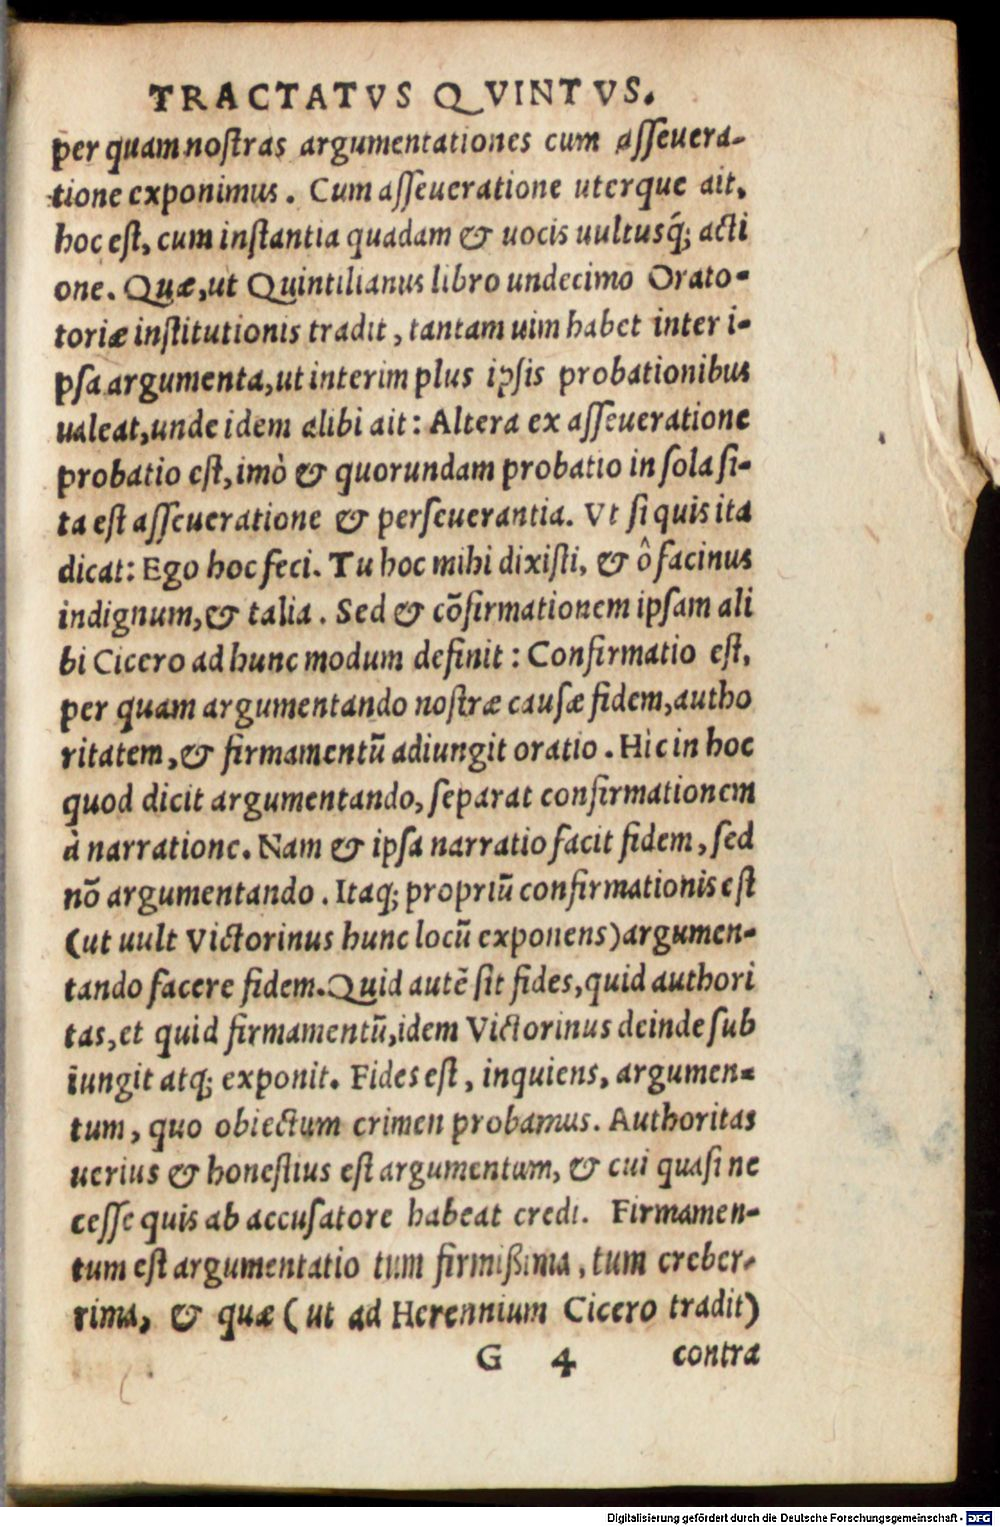 TRACTATVS QVINTVS.
per quam noſtras argumentationes cum aſſeuera-
tione exponimus. Cum aſſeueratione uterque ait,
hoc eſt, cum inſtantia quadam & uocis uultusq́; acti
one. Quæ, ut Quintilianus libro undecimo Orato-
toriæ inſtitutionis tradit, tantam uim habet inter i-
pſa argumenta, ut interim plus ipſis probationibus
ualeat, unde idem alibi ait: Altera ex aſſeueratione
probatio eſt, imò & quorundam probatio in ſola ſi-
ta eſt aſſeueratione & perſeuerantia. Vt ſi quis ita
dicat: Ego hoc feci. Tu hoc mihi dixiſti, & ô facinus
indignum, & talia. Sed & cōfirmationem ipſam ali
bi Cicero ad hunc modum definit: Confirmatio eſt,
per quam argumentando noſtræ cauſæ fidem, autho
ritatem, & firmamentū adiungit oratio. Hic in hoc
quod dicit argumentando, ſeparat confirmationem
à narratione. Nam & ipſa narratio facit fidem, ſed
nō argumentando. Itaq; propriū confirmationis eſt
(ut uult Victorinus hunc locū exponens) argumen-
tando facere fidem. Quid autē ſit fides, quid authori
tas, et quid firmamentū, idem Victorinus deinde ſub
iungit atq; exponit. Fides eſt, inquiens, argumen-
tum, quo obiectum crimen probamus. Authoritas
uerius & honeſtius eſt argumentum, & cui quaſi ne
ceſſe quis ab accuſatore habeat credi. Firmamen-
tum eſt argumentatio tum firmißima, tum creber-
rima, & quæ (ut ad Herennium Cicero tradit)
G 4 contra
Digitalisierung gefördert durch die Deutsche Forschungsgemeinschaft - DFG